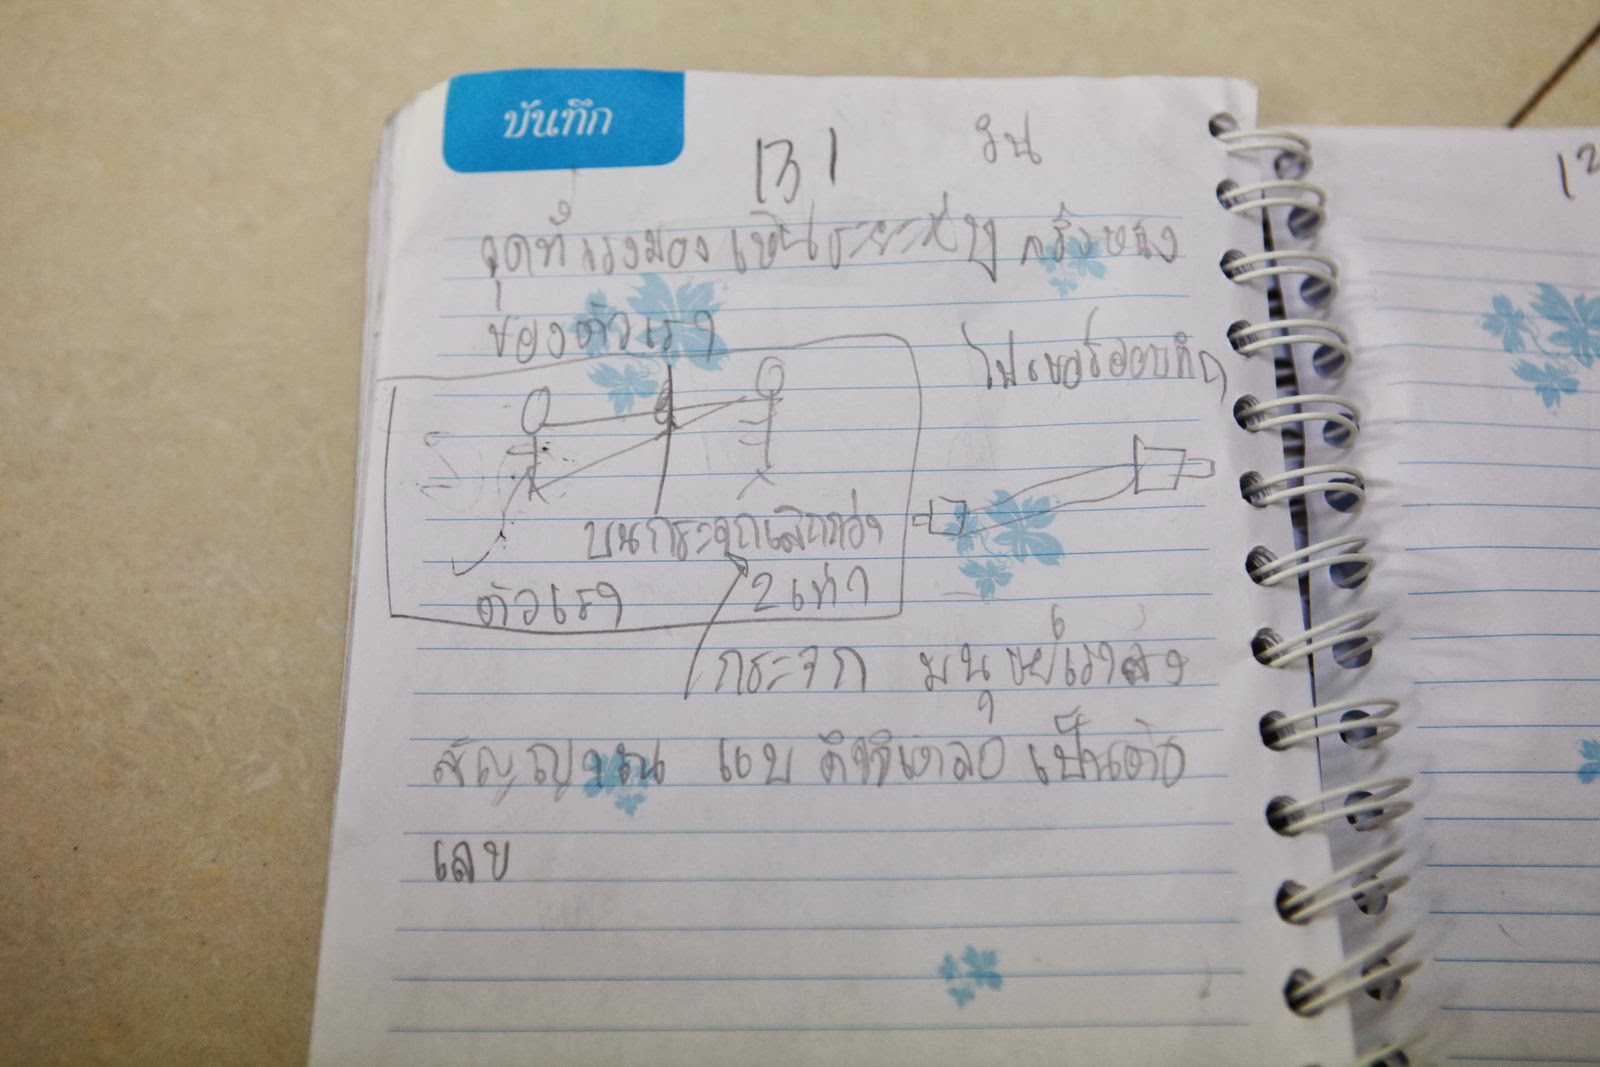 บันทึก
131
วัน
จุดที่เรามองเห็นระยะ ครึ่งหนึ่ง
ของตัวเรา
ไฟเบอร์ออฟติก
บนกระจกเล็กกว่า
2 เท่า
ตัวเรา
กระจก มนุษย์เราส่ง
สัญญาณ แบบ ดิจิตอล เป็นตัว
เลข
12